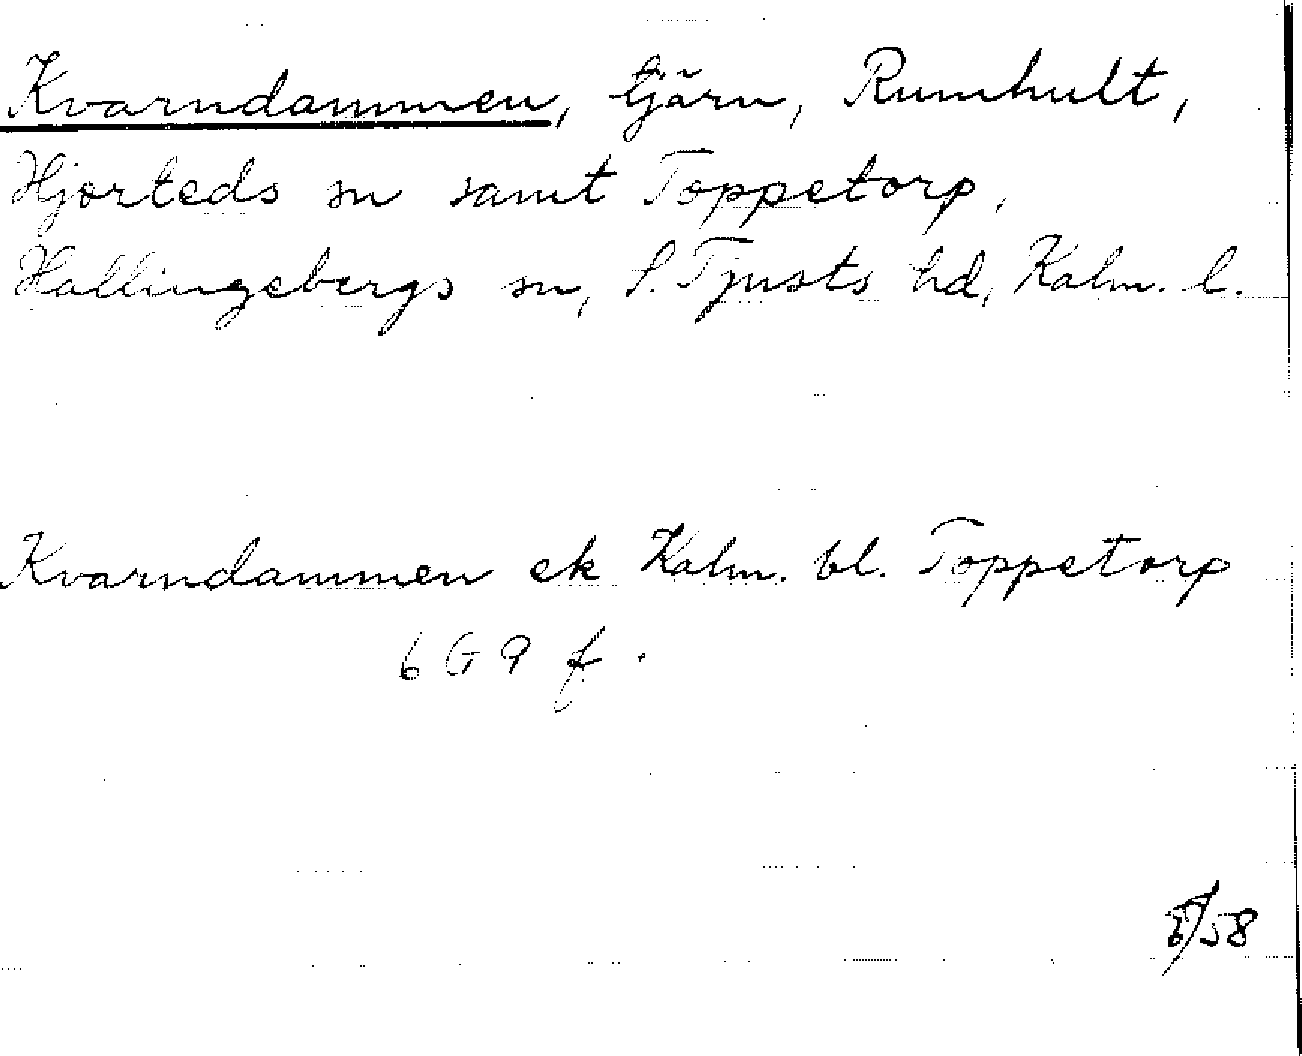 Kvarndammen, tjärn, Rumhult,
Hjorteds sn samt Toppetorp,
Hallingebergs sn, S. Tjusts hd, Kalm. l.
Kvarndammen ek Kalm. bl. Toppetorp
6 G 9 f.
/58